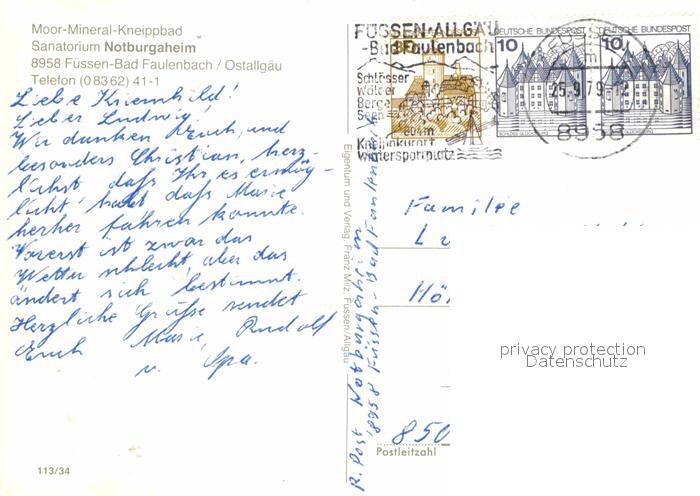 Moor-Mineral-Kneippbad
Sanatorium Notburgaheim
8958 Füssen-Bad Faulenbach / Ostallgäu
Telefon (0 83 62) 41-1
Liebe Kriemhild!
Lieber Ludwig!
Wir danken Euch, und
besonders Christian, herz-
lichst, daß Ihr, es ermög-
licht habt daß Marie
herher fahren konnte.
Vorerst ist zwar das
Wetter schlecht, aber das
ändert sich bestimmt.
Herzliche Grüße sendet
Euch Marie, Rudolf
u. Opa.
113/34
Eigentum und Verlag: Franz Milz, Füssen/Allgäu
R. Post Notburgaheim
8958 Füssen-Bad Faulenbach
FÜSSEN·ALLGÄU
-Bad Faulenbach
Schlösser
Wälder
Berge
Seen
804m
Kneippkurort
Wintersportplatz
DEUTSCHE BUNDESPOST
10
DEUTSCHE BUNDESPOST
10
25.9.79-12
8958
Familie
Hö
850
Postleitzahl
privacy protection
Datenschutz